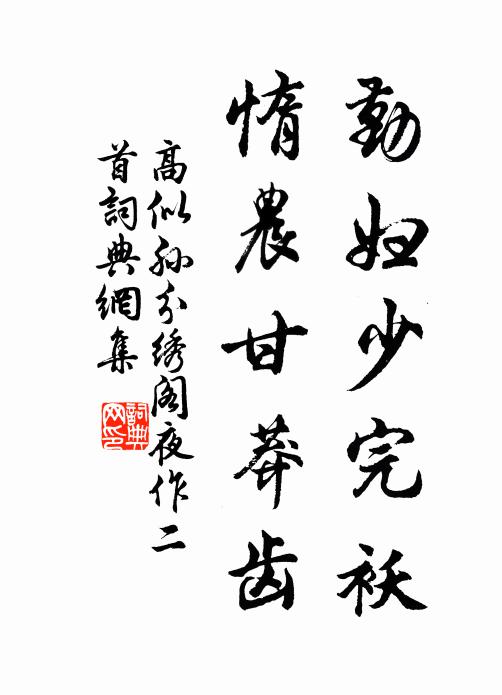 勤妇少完袄
惰農甘莽齿
高似孙分绣阁夜作二
首詞典網集
詞典
网印